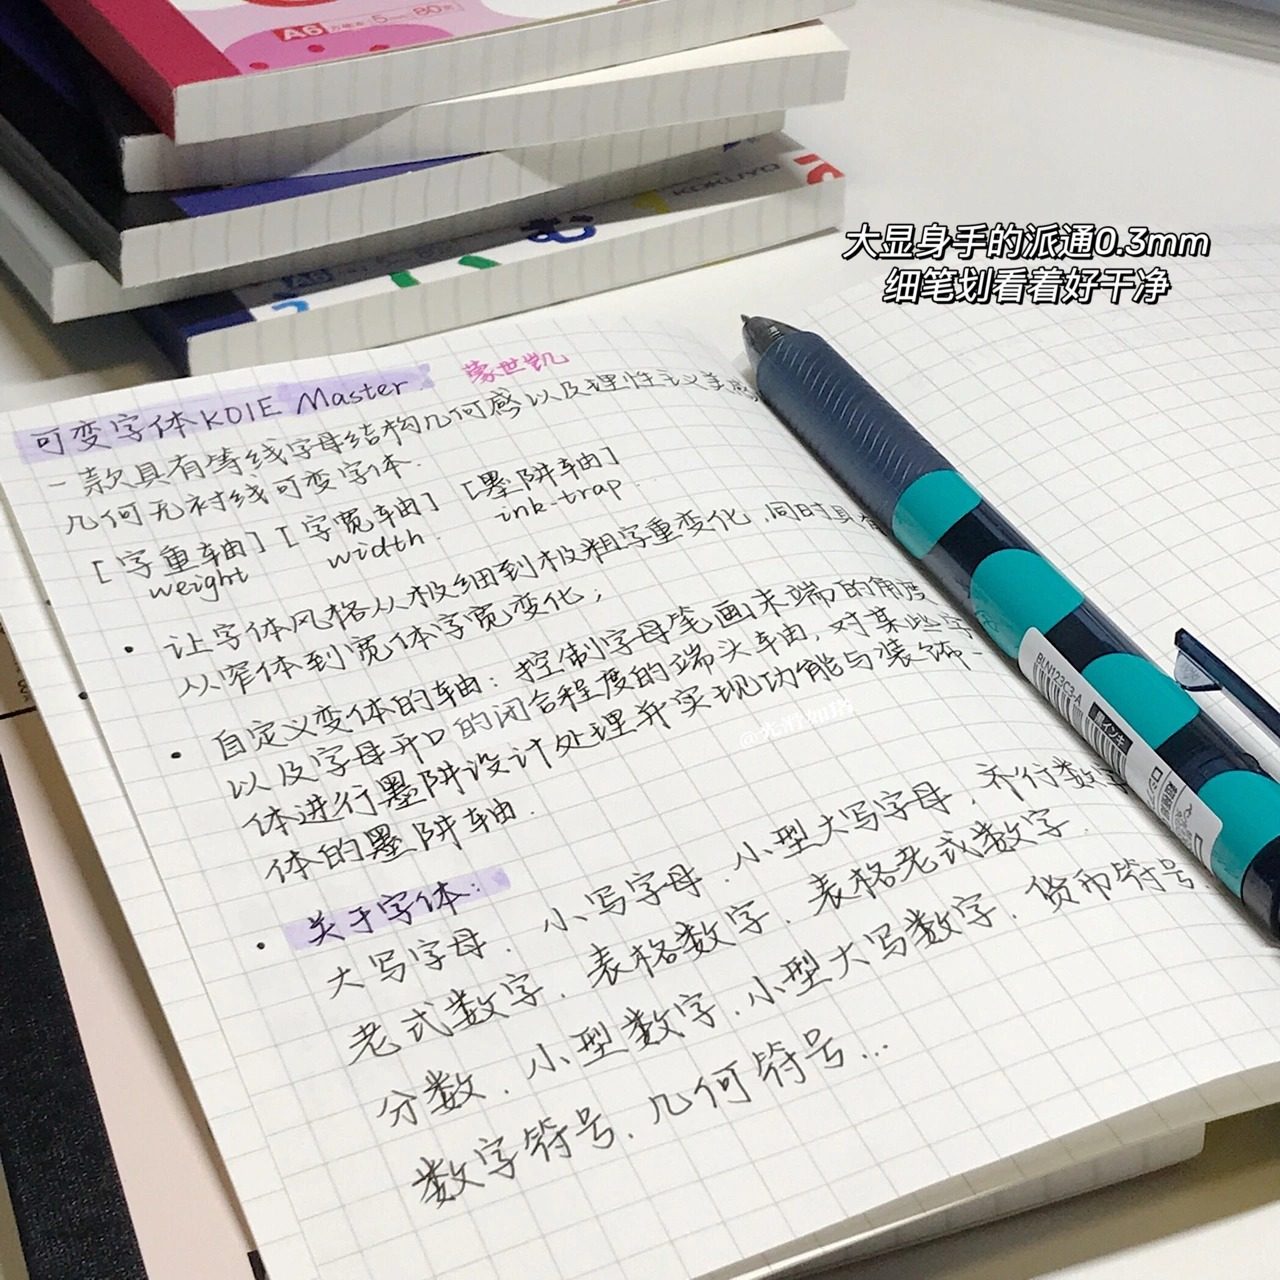 A6 5mm 80
KOKUYO
A6
む
大显身手的派通0.3mm
细笔划看着好干净
可变字体KOIE Master 蒙世凯
一款具有等线字母结构几何感以及理性主义美感
几何无衬线可变字体.
[字重轴] [字宽轴] [墨阱轴]
weight width. ink-trap.
· 让字体风格从极细到极粗字重变化,同时具有
从窄体到宽体字宽变化;
· 自定义变体的轴:控制字母笔画末端的角度
以及字母开口的闭合程度的端头轴,对某些字
体进行墨阱设计处理并实现功能与装饰一
体的墨阱轴.
· 关于字体:
大写字母、小写字母、小型大写字母、齐行数字
老式数字、表格数字、表格老式数字
分数、小型数字、小型大写数字、货币符号、
数字符号、几何符号...
BLN123C3-A
黒インキ